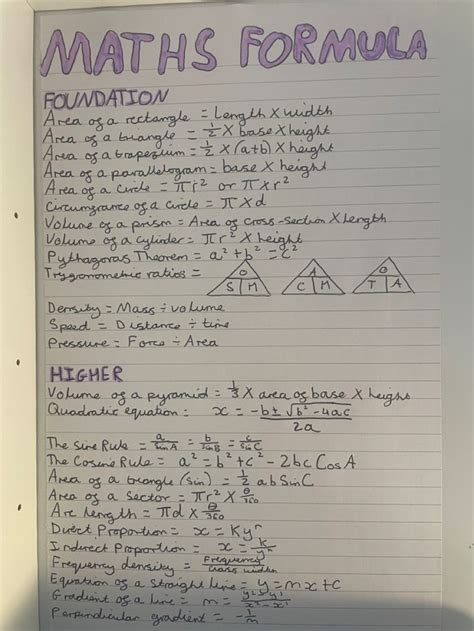 MATHS FORMULA
FOUNDATION
Area of a rectangle = Length X width
Area of a triangle = 1/2 X base X height
Area of a trapezium = 1/2 X (a+b) X height
Area of a parallelogram = base X height
Area of a circle = πr² or π x r²
Circumfrance of a circle = π X d
Volume of a prism = Area of cross-section X length
Volume of a cylinder = πr² X height
Pythagoras Theorem = a² + b² = c²
Trygonometric ratios =
O S H
A C H
O T A
Density = Mass ÷ volume
Speed = Distance ÷ time
Pressure = Force ÷ Area
HIGHER
Volume of a pyramid = 1/3 X area of base X height
Quadratic equation: x = -b ± √b² -4ac / 2a
The Sine Rule = a/SinA = b/SinB = c/SinC
The Cosine Rule = a² = b² + c² - 2bc CosA
Area of a triangle (sin) = 1/2 ab Sin C
Area of a Sector = πr² X θ/360
Arc length = πd X θ/360
Direct Proportion = x = Kyⁿ
Indirect Proportion = x = k/yⁿ
Frequency density = Frequency/class width
Equation of a straight line = y = mx + c
Gradient of a line = m =
Perpendicular gradient = -1/m